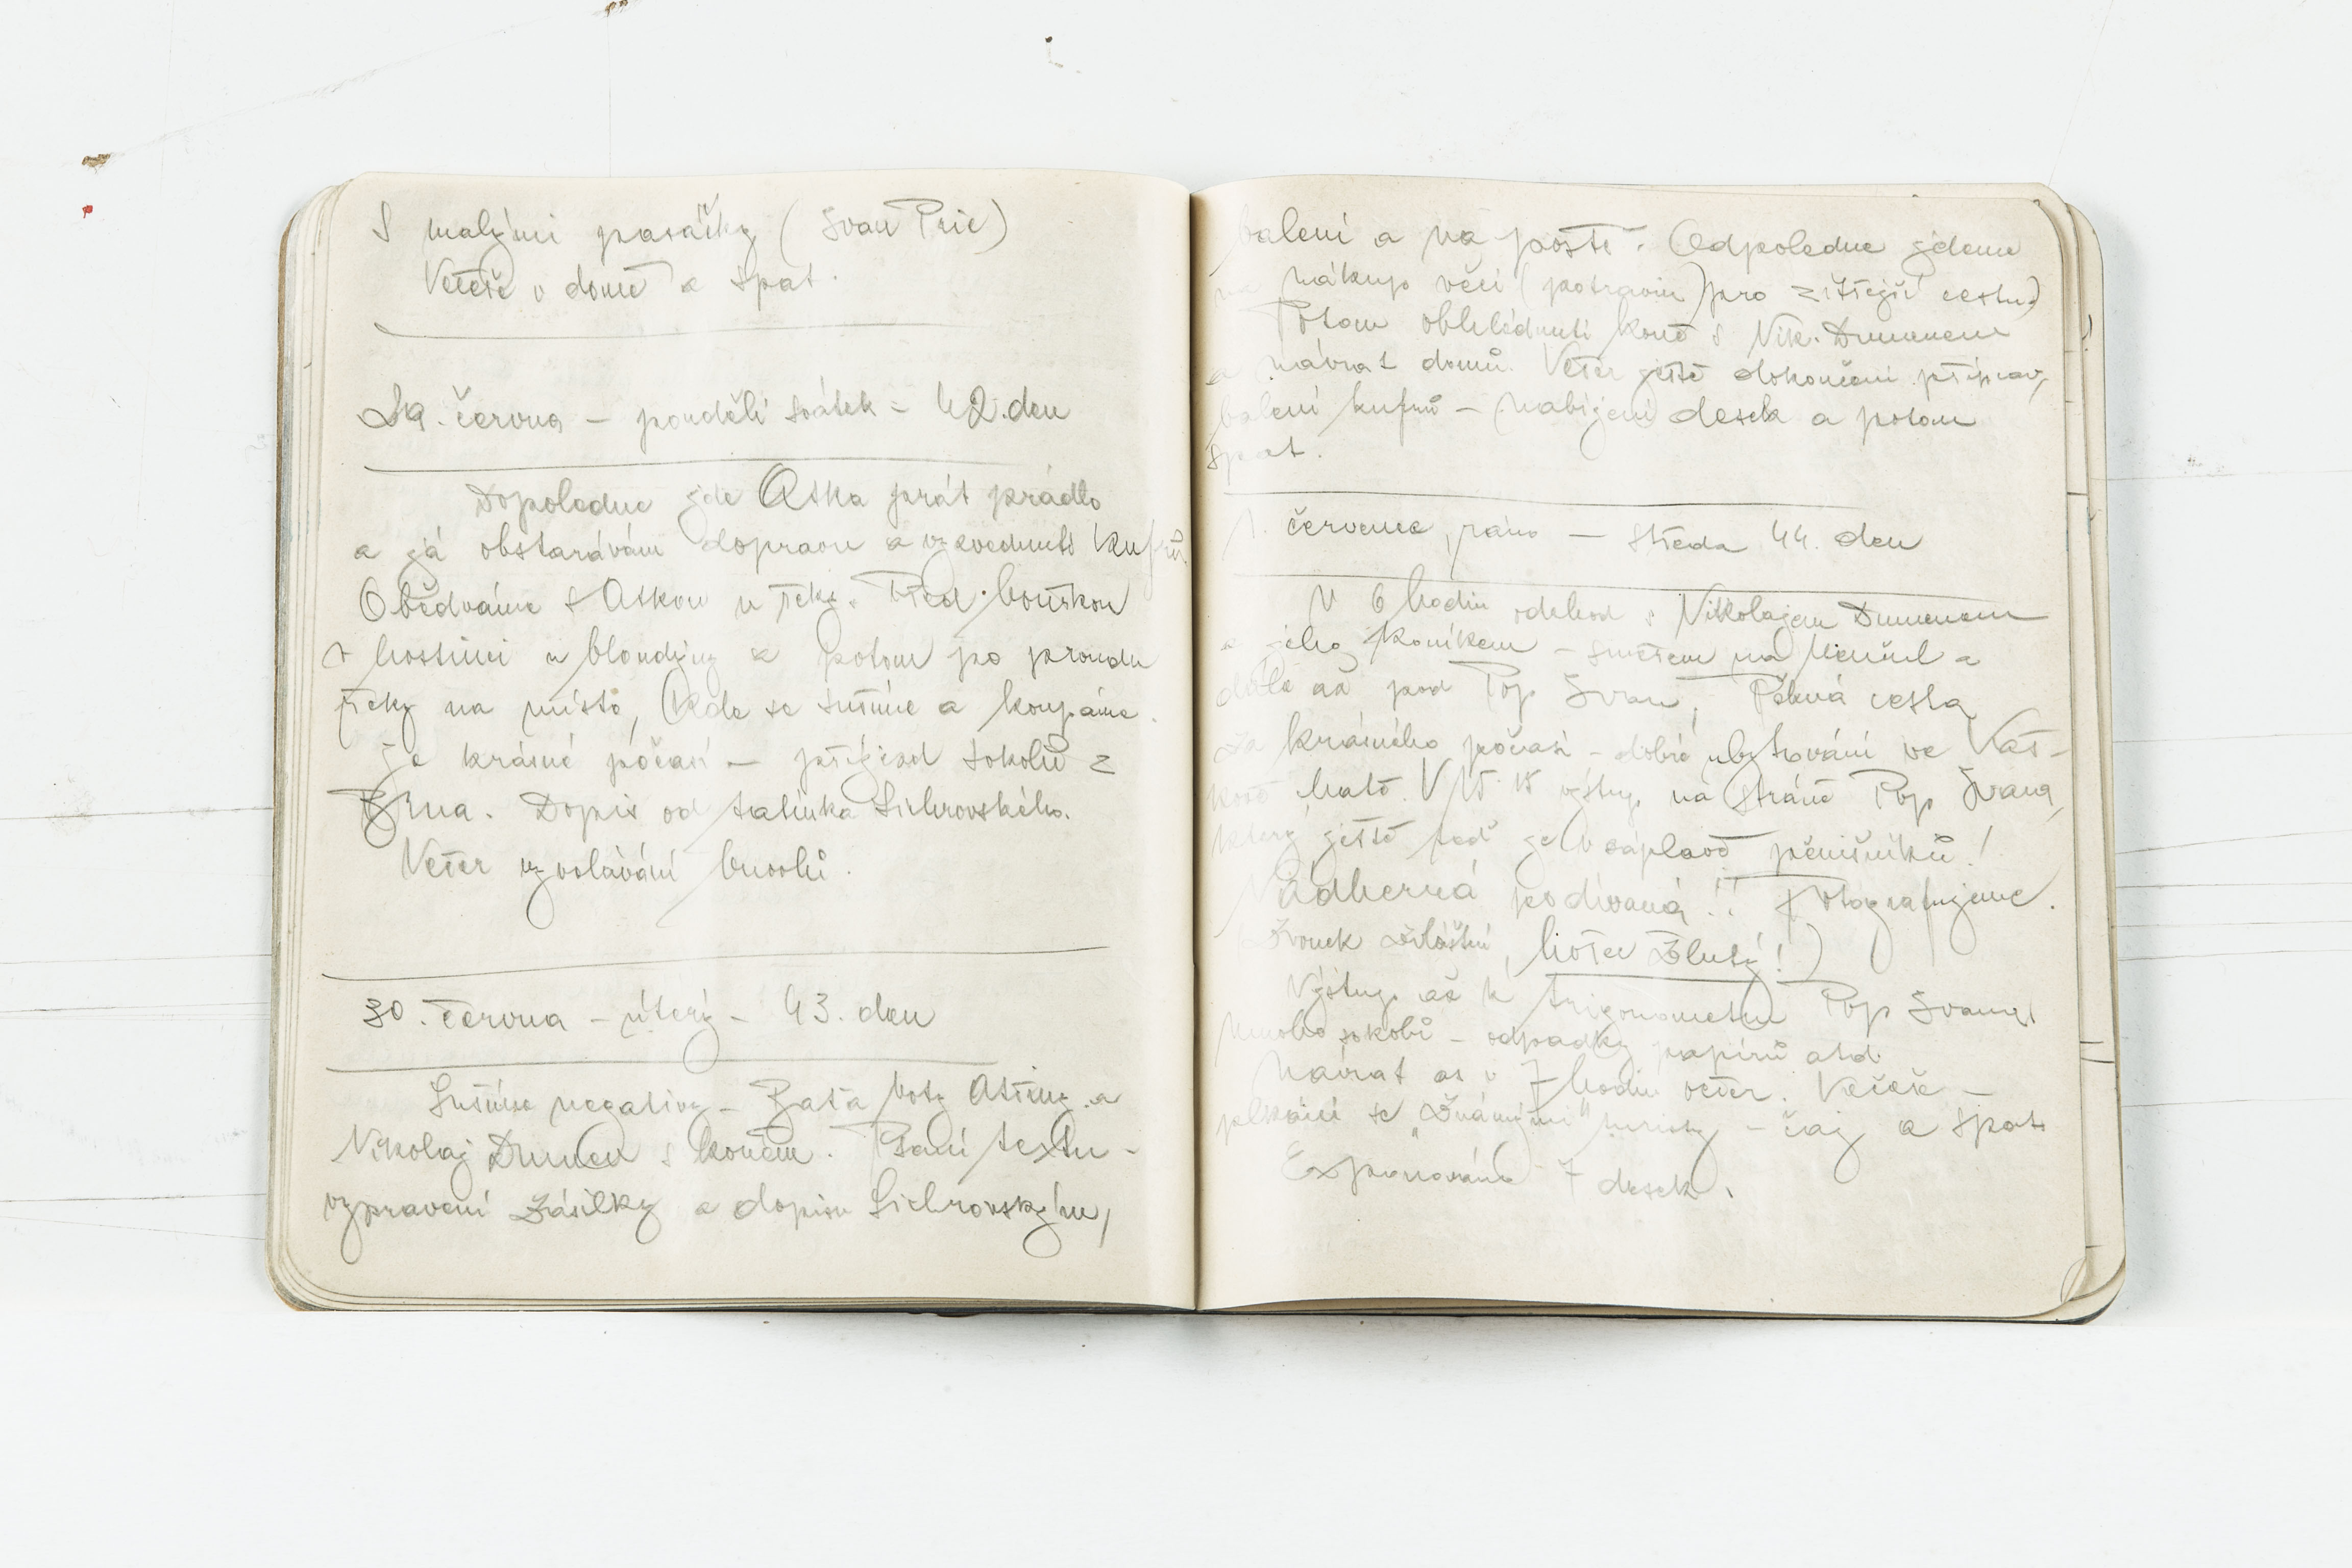 S malými pasáčky (Ivan Pric)
Večeře v domě a spat.
29. června – pondělí svátek = 42. den
Dopoledne jde Aska prát prádlo
a já obstarávám dopravu a vyzvednutí kufrů.
Obědváme s Askou u řeky. Před bouřkou
v hostinci u blondýny a potom po proudu
řeky na místo, kde se sušíme a koupáme.
Je krásné počasí – příjezd sokolů z
Brna. Dopis od tatínka Sichrovského.
Večer vyvolávání
30. června – úterý – 43. den
Sušíme negativy – Baťa boty Astiny a
Nikolaj Dumen s koněm. Psaní textu –
vypravení zásilky a dopisu Sichrovským,
balení a na poště. Odpoledne jdeme
na nákup věcí (potravin) pro zítřejší cestu)
Potom ohlédnutí koně s Nik. Dumenem
a návrat domů. Večer ještě dokončení příprav,
balení kufrů – nabíjení desek a potom
spat.
1. července, ráno – středa 44. den
V 6 hodin odchod s Nikolajem Dumenem
a jeho koníkem – směrem na Menčul a
dále až pod Pop Ivan. Pěkná cesta
za krásného počasí – dobré ubytování ve Vaš-
kově chatě. V 15 15 výstup na stráně Pop Ivana,
který ještě teď je v záplavě pěnišníků!
Nádherná podívaná!! Fotografujeme.
(Zvonek zvláštní, hořec žlutý!)
Výstup až k trigonometru Pop Ivana,
mnoho sokolů – odpadky papírů atd.
Návrat as v 7 hodin večer. Večeře –
se „známými" turisty – čaj a spat.
Exponováno 7 desek.